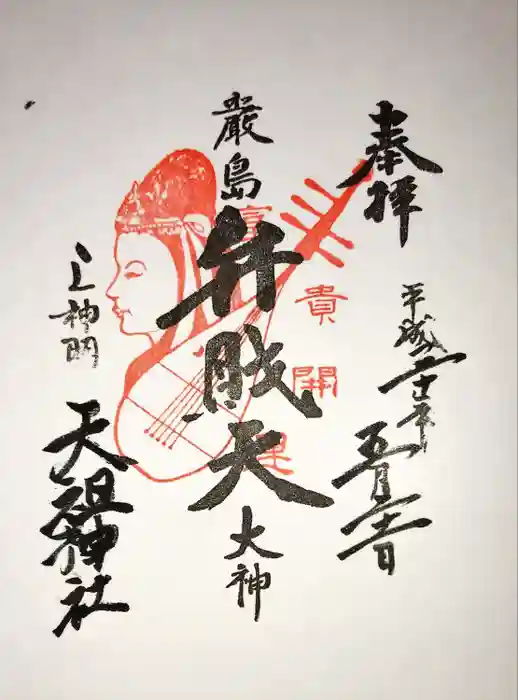 奉拝
平成二十二年
五月二十二日
厳島
弁財天
大神
貴
開
上神明
天祖神社